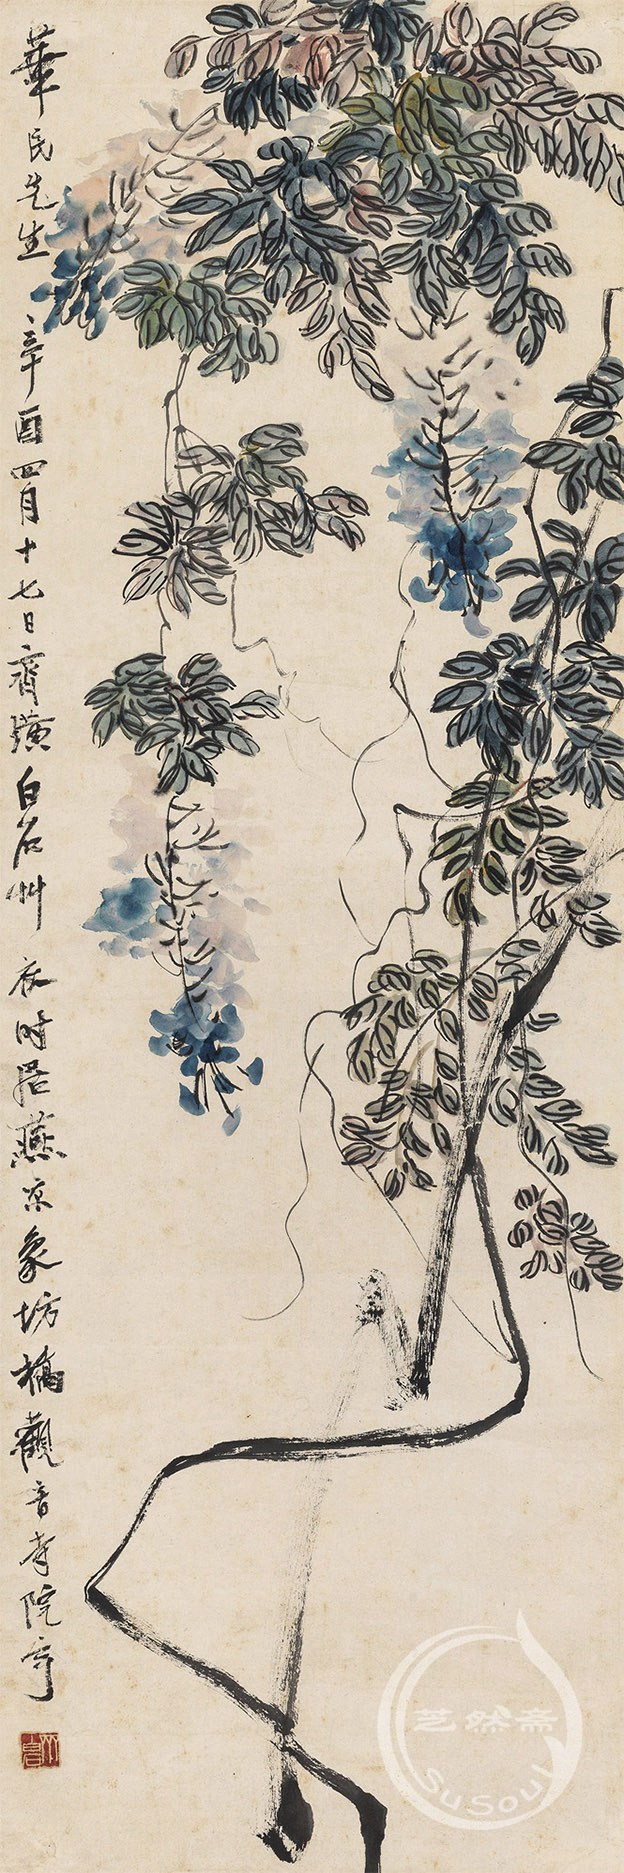 華民先生 辛酉四月十七日齊璜白石艸 於時居燕京象坊橋觀音寺院宇
芝然斋
SuSoul